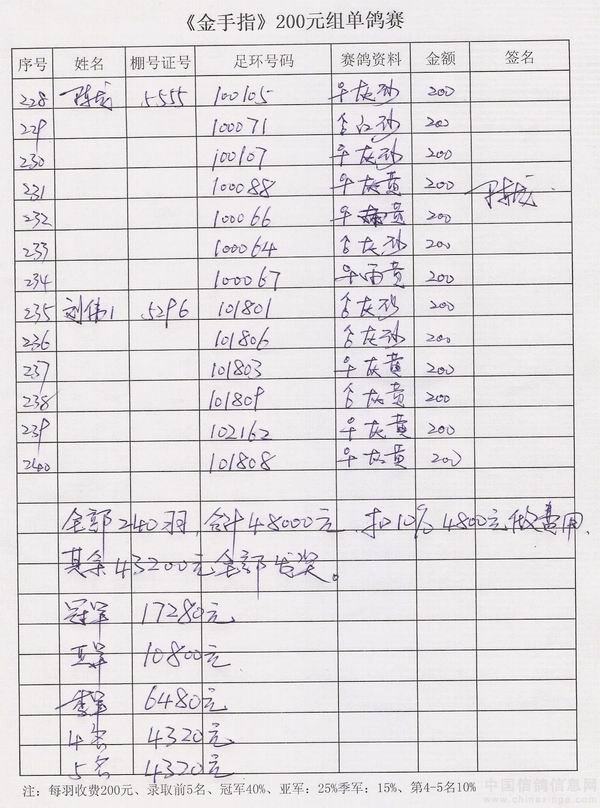 《金手指》200元组单鸽赛
序号 姓名 棚号证号 足环号码 赛鸽资料 金额 签名
228 5555 100105 灰砂 200
229 100071 红砂 200
230 100107 灰砂 200
231 100088 灰黄 200
232 100066 黄 200
233 100064 灰砂 200
234 100067 雨黄 200
235 刘伟1 5296 101801 灰砂 200
236 101806 灰砂 200
237 101803 灰黄 200
238 101809 灰黄 200
239 102162 灰黄 200
240 101808 灰黄 200
全部240羽,合计48000元 扣10% 4800元做费用.
其余43200元全部发奖。
冠军 17280元
亚军 10800元
季军 6480元
4名 4320元
5名 4320元
注:每羽收费200元、录取前5名、冠军40%、亚军:25%季军:15%、第4-5名10%
中国信鸽信息网
www.chinaxinge.com